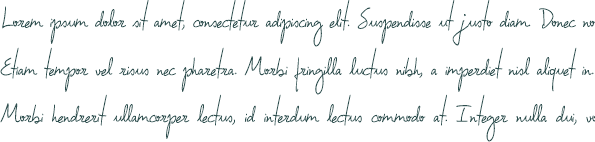 Lorem ipsum dolor sit amet, consectetur adipiscing elit. Suspendisse ut justo diam. Donec no
Etiam tempor vel risus nec pharetra. Morbi fringilla luctus nibh, a imperdiet nisl aliquet in.
Morbi hendrerit ullamcorper lectus, id interdum lectus commodo at. Integer nulla dui, v